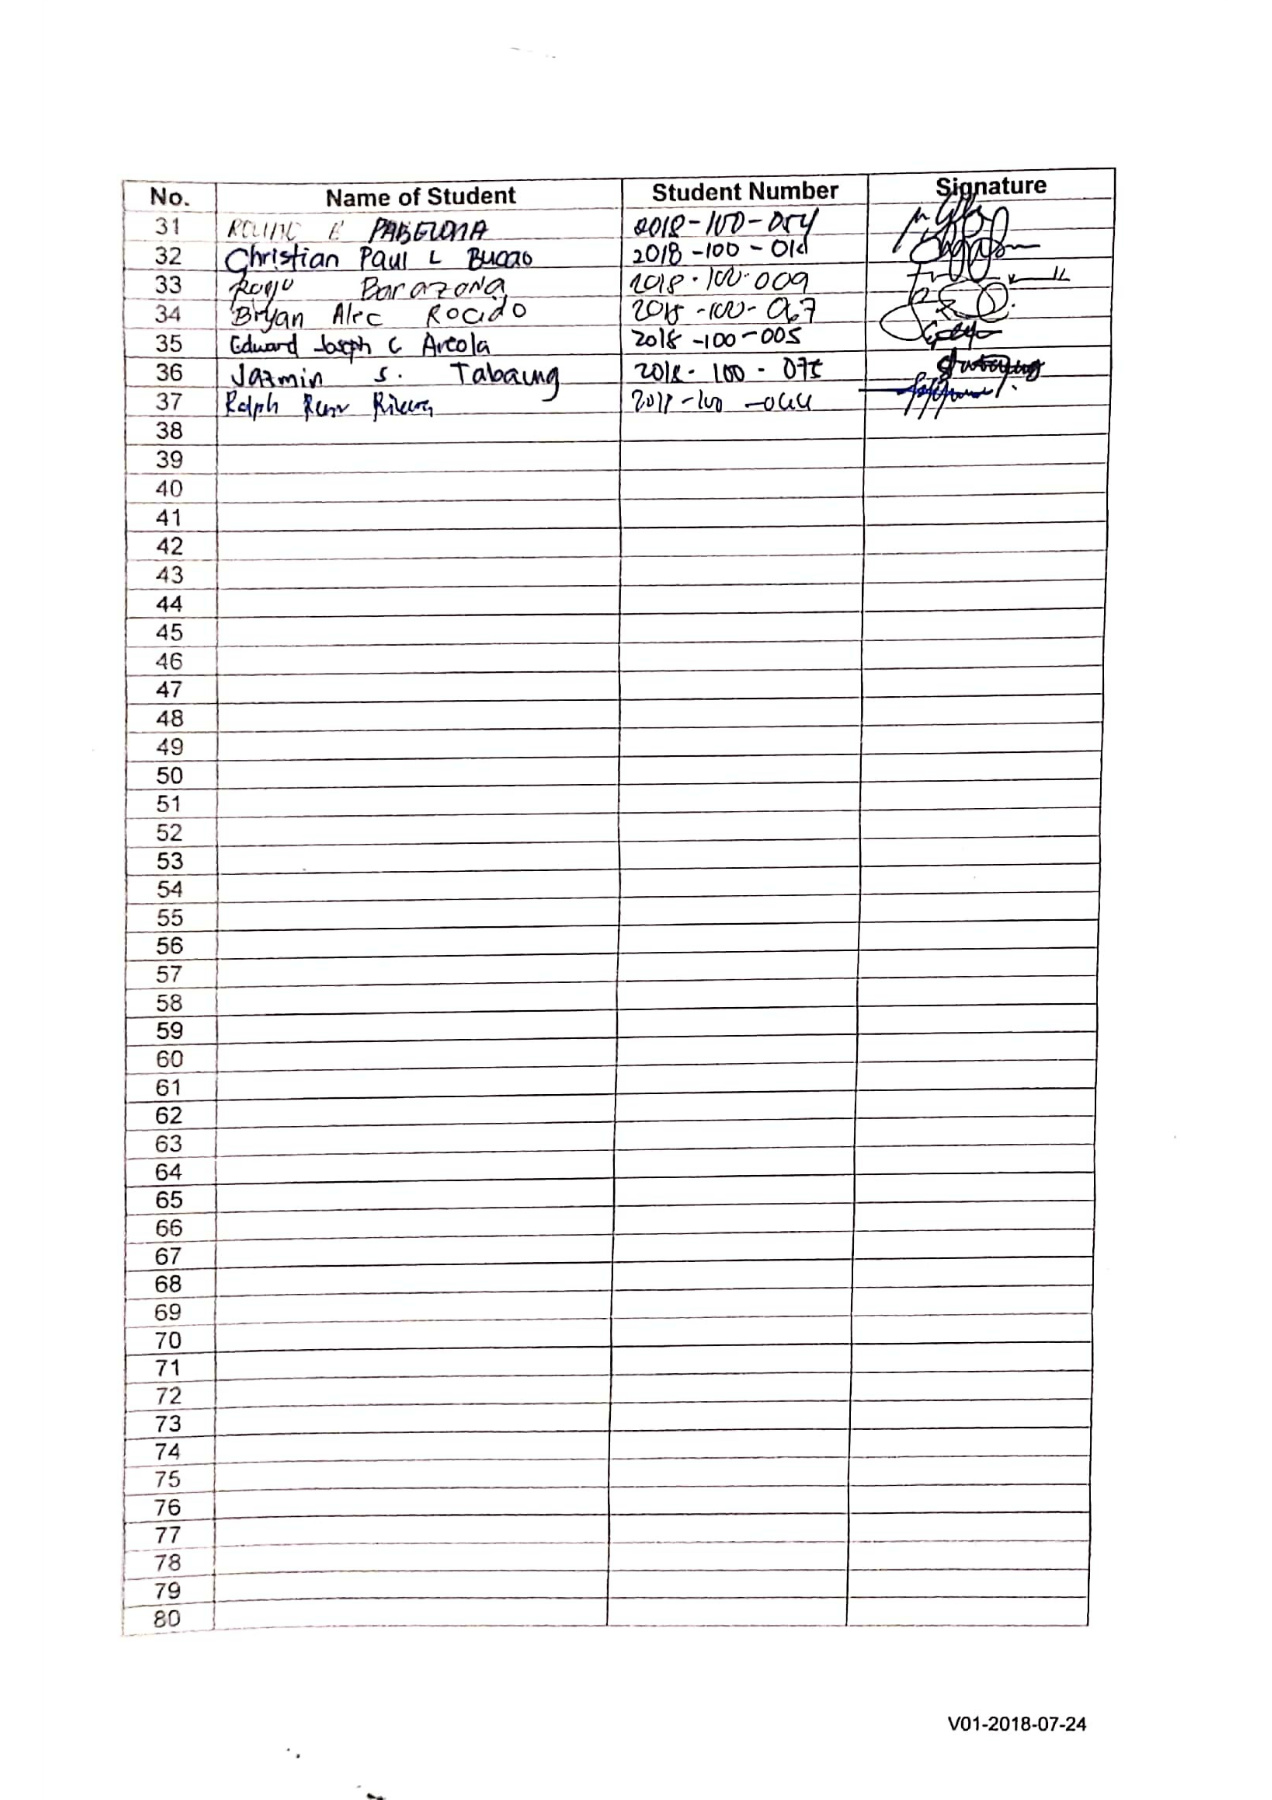 No. Name of Student Student Number Signature
31 PABELONA 2018-100-054
32 Christian Paul L Bucao 2018-100-01
33 Barazona 2018-100-009
34 Bryan Alec Rocido 2018-100-067
35 Edward Joseph C Areola 2018-100-005
36 Jazmin S. Tabaung 2018-100-075
37 Ralph
38
39
40
41
42
43
44
45
46
47
48
49
50
51
52
53
54
55
56
57
58
59
60
61
62
63
64
65
66
67
68
69
70
71
72
73
74
75
76
77
78
79
80
V01-2018-07-24